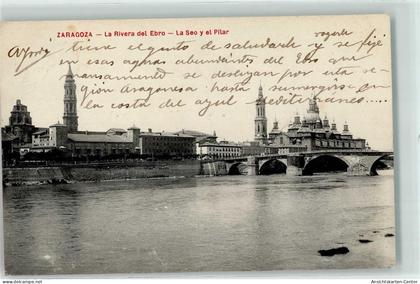 ZARAGOZA — La Rivera del Ebro — La Seo y el Pilar
Ayora tiene el gusto de saludarle y rogarle se fije
en esas aguas abundantes del Ebro que
mansamente se deslizan por esta re-
gión aragonesa hasta sumergirse en
la costa de azul Mediterraneo....
Ansichtskarten-Center